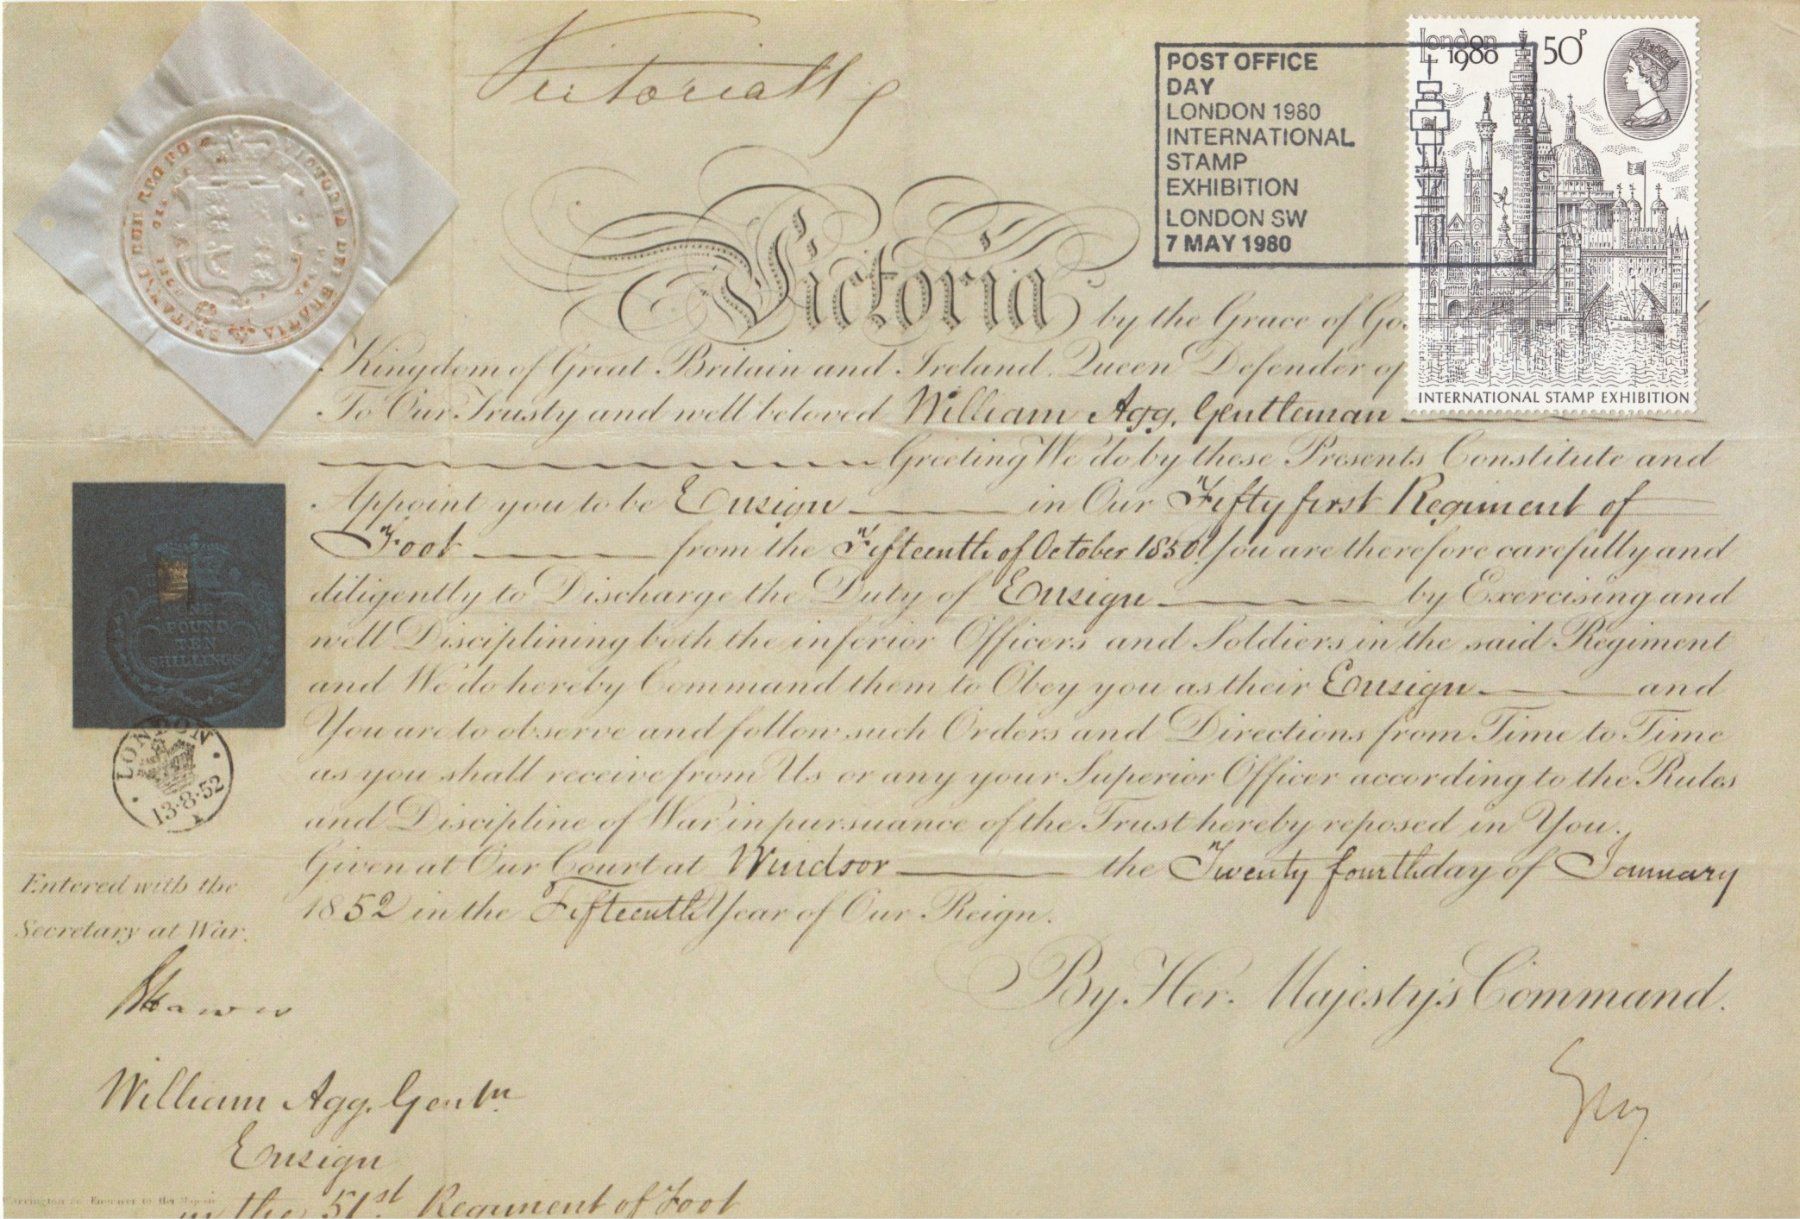 Victoria R
VICTORIA DEI GRATIA BRITANNIAR REG FD
London
1980
50P
POST OFFICE
DAY
LONDON 1980
INTERNATIONAL
STAMP
EXHIBITION
LONDON SW
7 MAY 1980
INTERNATIONAL STAMP EXHIBITION
Victoria by the Grace of Go
Kingdom of Great Britain and Ireland Queen Defender of
To Our Trusty and well beloved William Agg, Gentleman
Greeting We do by these Presents Constitute and
Appoint you to be Ensign in Our Fifty first Regiment of
Foot from the Fifteenth of October 1850 You are therefore carefully and
diligently to Discharge the Duty of Ensign by Exercising and
well Disciplining both the inferior Officers and Soldiers in the said Regiment
and We do hereby Command them to Obey you as their Ensign and
You are to observe and follow such Orders and Directions from Time to Time
as you shall receive from Us or any your Superior Officer according to the Rules
and Discipline of War in pursuance of the Trust hereby reposed in You.
Given at Our Court at Windsor the Twenty fourth day of January
1852 in the Fifteenth Year of Our Reign.
By Her Majesty's Command.
ONE
POUND
TEN
SHILLINGS
LONDON
13·8·52
Entered with the
Secretary at War.
William Agg, Gentn
Ensign
in the 51st Regiment of Foot